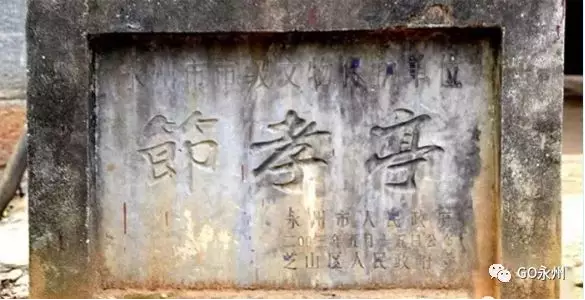 永州市市级文物保护单位
節孝亭
永州市人民政府
二〇〇二年五月一五日公
芝山区人民政府
GO永州